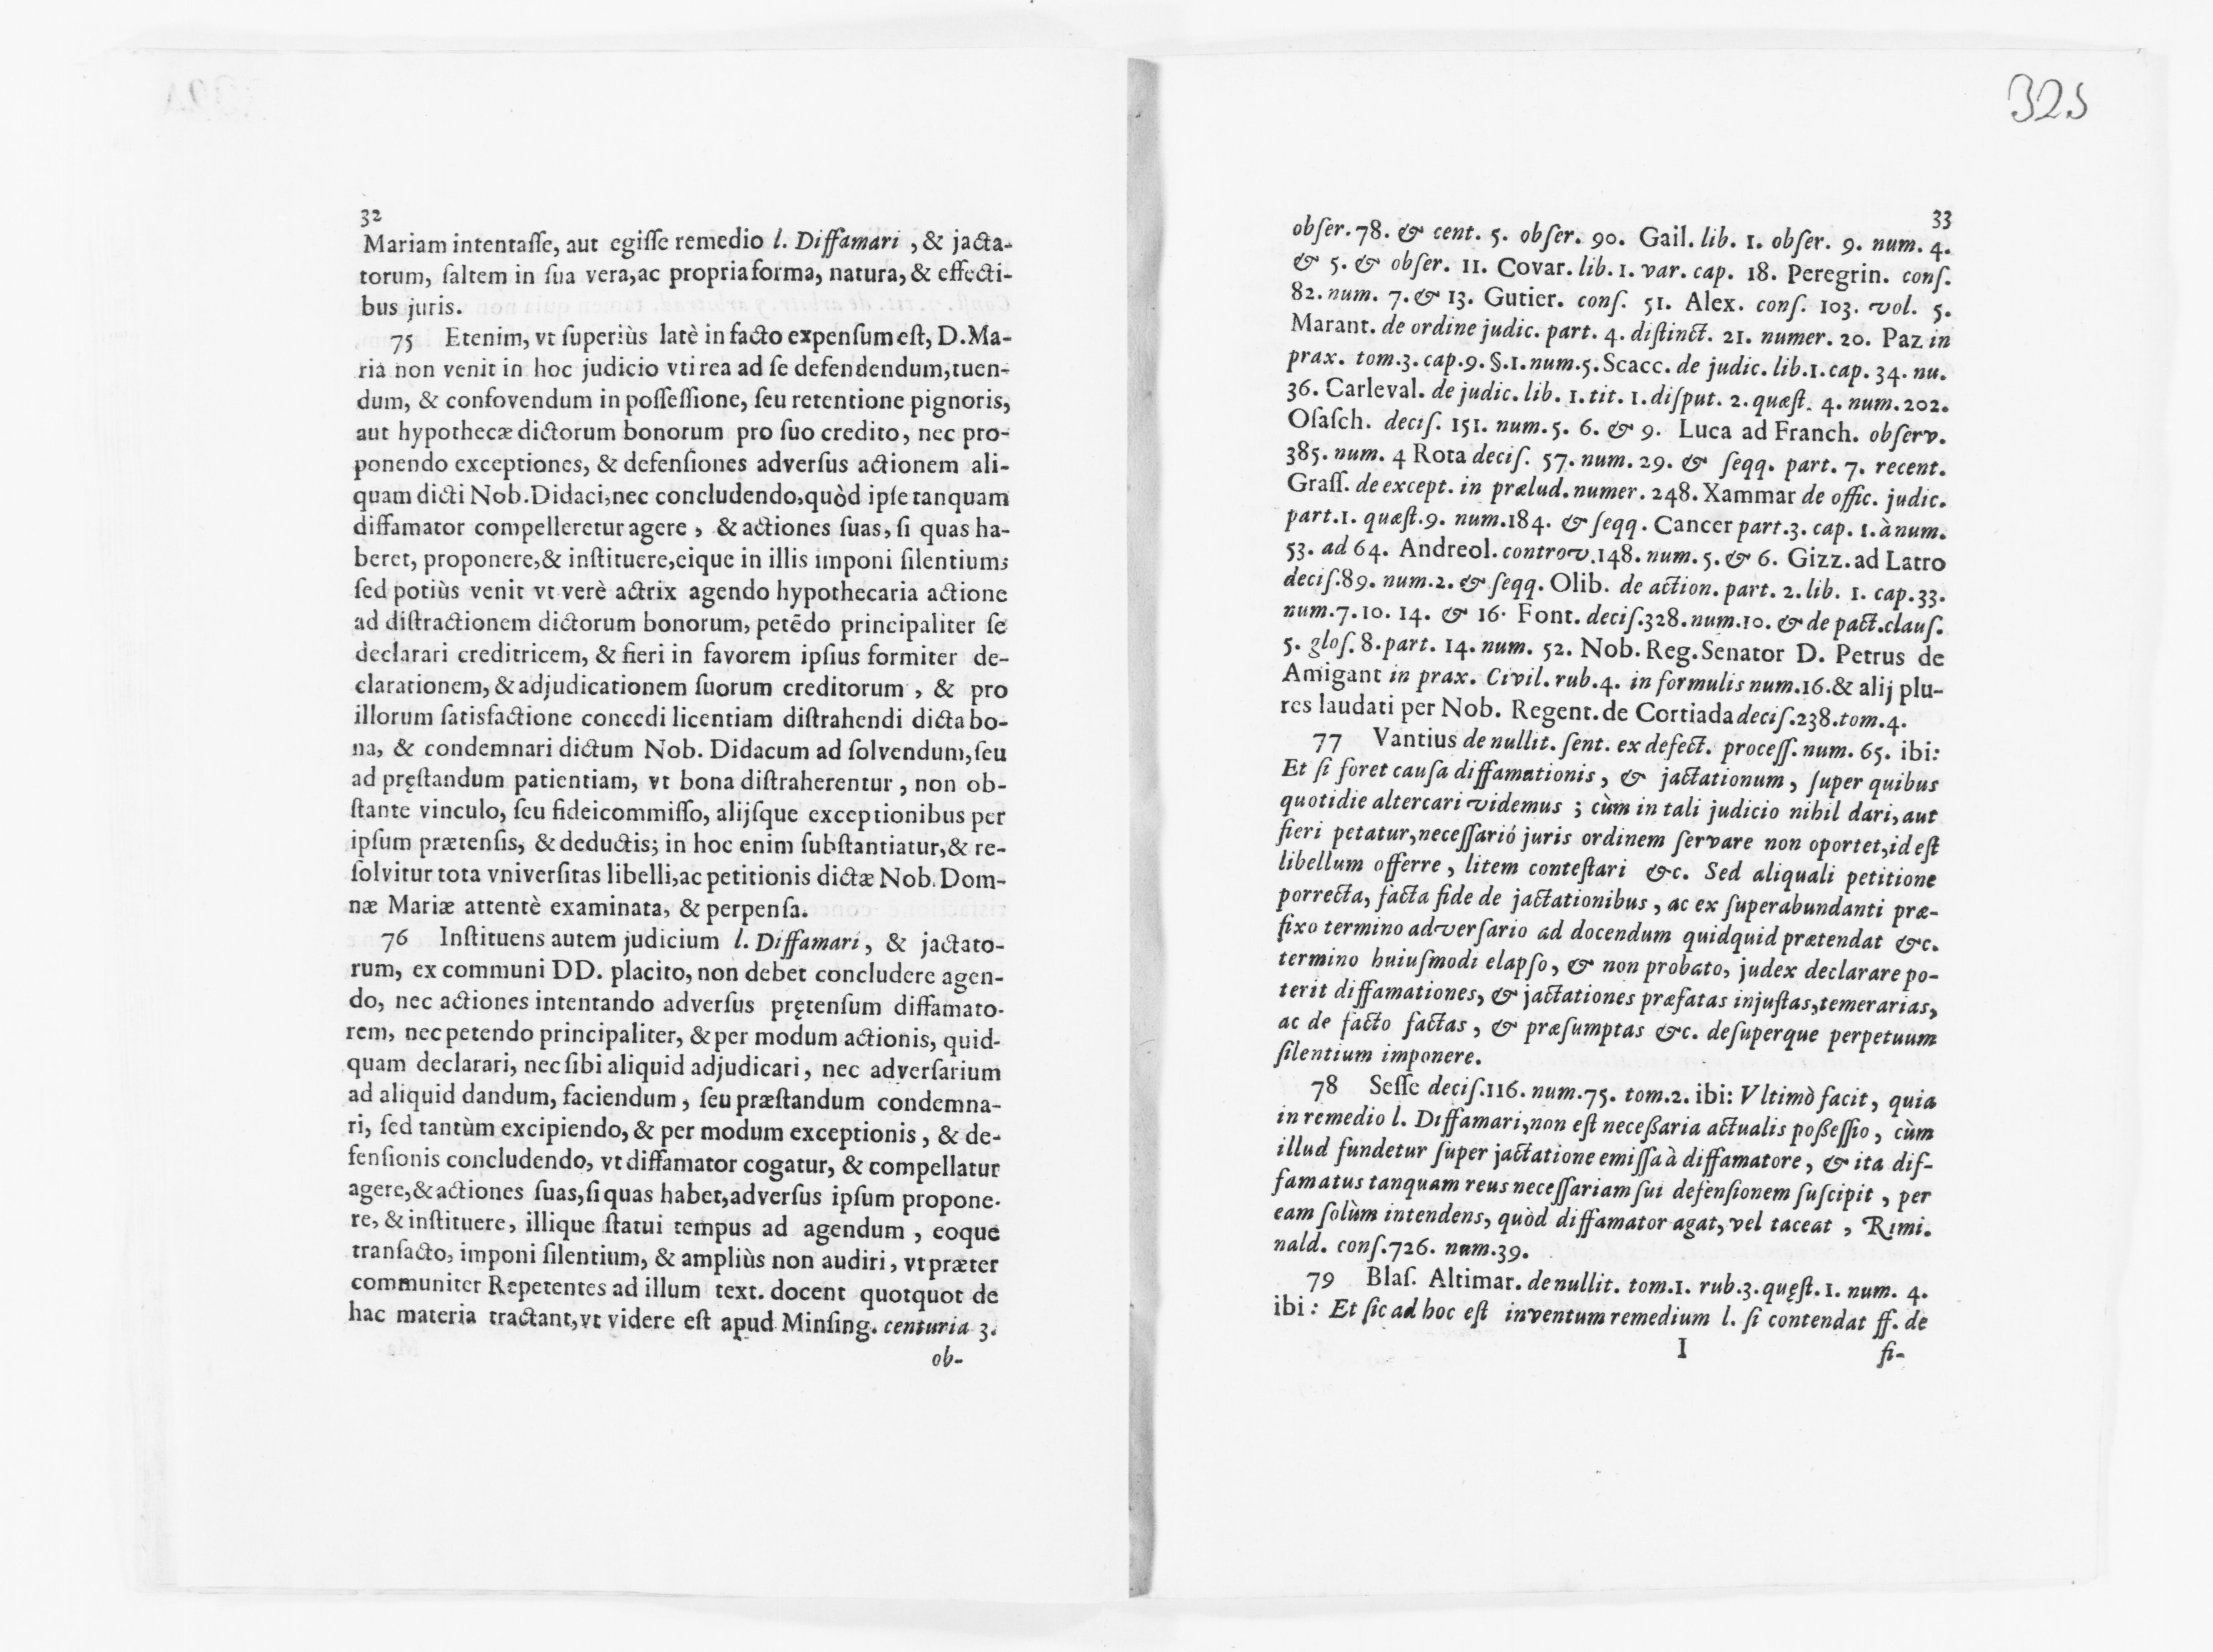 32
Mariam intentaſſe, aut egiſſe remedio l. Diffamari, & jacta-
torum, ſaltem in ſua vera, ac propria forma, natura, & effecti-
bus juris.
75 Etenim, vt ſuperiùs latè in facto expenſum eſt, D. Ma-
ria non venit in hoc judicio vti rea ad ſe defendendum, tuen-
dum, & confovendum in poſſeſſione, ſeu retentione pignoris,
aut hypothecæ dictorum bonorum pro ſuo credito, nec pro-
ponendo exceptiones, & defenſiones adverſus actionem ali-
quam dicti Nob. Didaci, nec concludendo, quòd ipſe tanquam
diffamator compelleretur agere, & actiones ſuas, ſi quas ha-
beret, proponere, & inſtituere, eique in illis imponi ſilentium;
ſed potiùs venit vt verè actrix agendo hypothecaria actione
ad diſtractionem dictorum bonorum, petēdo principaliter ſe
dèclarari creditricem, & fieri in favorem ipſius formiter de-
clarationem, & adjudicationem ſuorum creditorum, & pro
illorum ſatisfactione concedi licentiam diſtrahendi dicta bo-
na, & condemnari dictum Nob. Didacum ad ſolvendum, ſeu
ad pręſtandum patientiam, vt bona diſtraherentur, non ob-
ſtante vinculo, ſeu fideicommiſſo, alijſque exceptionibus per
ipſum prætenſis, & deductis; in hoc enim ſubſtantiatur, & re-
ſolvitur tota vniverſitas libelli, ac petitionis dictæ Nob. Dom-
næ Mariæ attentè examinata, & perpenſa.
76 Inſtituens autem judicium l. Diffamari, & jactato-
rum, ex communi DD. placito, non debet concludere agen-
do, nec actiones intentando adverſus prętenſum diffamato-
rem, nec petendo principaliter, & per modum actionis, quid-
quam declarari, nec ſibi aliquid adjudicari, nec adverſarium
ad aliquid dandum, faciendum, ſeu præſtandum condemna-
ri, ſed tantùm excipiendo, & per modum exceptionis, & de-
fenſionis concludendo, vt diffamator cogatur, & compellatur
agere, & actiones ſuas, ſi quas habet, adverſus ipſum propone-
re, & inſtituere, illique ſtatui tempus ad agendum, eoque
tranſacto, imponi ſilentium, & ampliùs non audiri, vt præter
communiter Repetentes ad illum text. docent quotquot de
hac materia tractant, vt videre eſt apud Minſing. centuria 3.
ob-
325
33
obſer. 78. & cent. 5. obſer. 90. Gail. lib. 1. obſer. 9. num. 4.
& 5. & obſer. 11. Covar. lib. 1. var. cap. 18. Peregrin. conſ.
82. num. 7. & 13. Gutier. conſ. 51. Alex. conſ. 103. vol. 5.
Marant. de ordine judic. part. 4. diſtinct. 21. numer. 20. Paz in
prax. tom. 3. cap. 9. §. 1. num. 5. Scacc. de judic. lib. 1. cap. 34. nu.
36. Carleval. de judic. lib. 1. tit. 1. diſput. 2. quæſt. 4. num. 202.
Oſaſch. deciſ. 151. num. 5. 6. & 9. Luca ad Franch. obſerv.
385. num. 4 Rota deciſ. 57. num. 29. & ſeqq. part. 7. recent.
Graſſ. de except. in prælud. numer. 248. Xammar de offic. judic.
part. 1. quæſt. 9. num. 184. & ſeqq. Cancer part. 3. cap. 1. à num.
53. ad 64. Andreol. controv. 148. num. 5. & 6. Gizz. ad Latro
deciſ. 89. num. 2. & ſeqq. Olib. de action. part. 2. lib. 1. cap. 33.
num. 7. 10. 14. & 16. Font. deciſ. 328. num. 10. & de pact. clauſ.
5. gloſ. 8. part. 14. num. 52. Nob. Reg. Senator D. Petrus de
Amigant in prax. Civil. rub. 4. in formulis num. 16. & alij plu-
res laudati per Nob. Regent. de Cortiada deciſ. 238. tom. 4.
77 Vantius de nullit. ſent. ex defect. proceſſ. num. 65. ibi:
Et ſi foret cauſa diffamationis, & jactationum, ſuper quibus
quotidie altercari videmus; cùm in tali judicio nihil dari, aut
fieri petatur, neceſſarió juris ordinem ſervare non oportet, id eſt
libellum offerre, litem conteſtari &c. Sed aliquali petitione
porrecta, facta fide de jactationibus, ac ex ſuperabundanti præ-
fixo termino adverſario ad docendum quidquid prætendat &c.
termino huiuſmodi elapſo, & non probato, judex declarare po-
terit diffamationes, & jactationes præfatas injuſtas, temerarias,
ac de facto factas, & præſumptas &c. deſuperque perpetuum
ſilentium imponere.
78 Seſſe deciſ. 116. num. 75. tom. 2. ibi: Vltimò facit, quia
in remedio l. Diffamari, non eſt neceßaria actualis poßeſſio, cùm
illud fundetur ſuper jactatione emiſſa à diffamatore, & ita dif-
famatus tanquam reus neceſſariam ſui defenſionem ſuſcipit, per
eam ſolùm intendens, quòd diffamator agat, vel taceat, Rimi.
nald. conſ. 726. num. 39.
79 Blaſ. Altimar. de nullit. tom. 1. rub. 3. quęſt. 1. num. 4.
ibi: Et ſic ad hoc eſt inventum remedium l. ſi contendat ff. de
I fi-